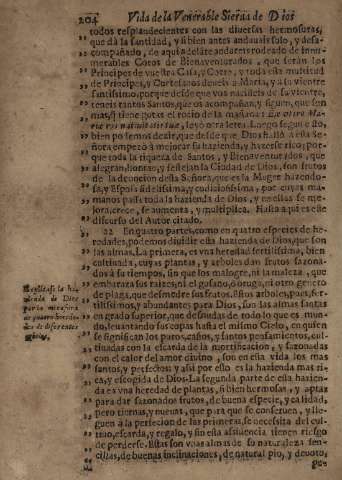 204 Vida de la Venerable Sierva de Dios
todos resplandecientes con las diversas hermosuras,
que dà la santidad, y si bien antes andauais solo, y desa-
compañado, de aqui adelāte andareis rodeado de innu-
merables Coros de Bienaventurados, que serán los
Principes de vuestra Casa, y Corte, y toda esta multitud
de Principes, y Cortesanos deveis à Maria, y à su vientre
santissimo, porque desde que vos naciste de su vientre,
teneis tantos Santos, que os acompañan, y siguen, que son
mas, q̃ tiene gotas el rocio de la mañana:
leyò otra letra. Luego segun esto,
bien podemos dezir, que desde que Dios hallò à esta Se-
ñora empezò à mejorar su hazienda, y hazerse rico; por-
que toda la riqueza de Santos, y Bienaventurados, que
alegran, honran, y festejan la Ciudad de Dios, son frutos
de la devocion desta Señora, que es la Muger hazendo-
sa, y Esposa fidelissima, y codiciosissima, por cuyas ma-
manos passa toda la hazienda de Dios, y en ellas se me-
jora, crece, se aumenta, y multiplica. Hasta aqui es este
discurso del Autor citado.
22 En quatro partes, como en quatro especies de he-
redades, podemos dividir esta hazienda de Dios, que son
las almas. La primera, es vna heredad fertilissima, bien
cultivada, cuyas plantas, y arboles dan frutos sazona-
dos à su tiempo, sin que los malogre, ni la maleza, que
embaraza sus raizes, ni el gusano, ò oruga, ni otro genero
de plaga, que desmedre sus frutos. Estos arboles, pues, fer-
tilissimos, y abundantes para Dios, son las almas santas
en grado superior, que desnudas de todo lo que es mun-
do, levantando sus copas hasta el mismo Cielo, en quien
se significan los puros, castos, y santos pensamientos, cul-
tiuadas con la escarda de la mortificacion, y sazonadas
con el calor del amor divino, son en esta vida los mas
santos, y perfectos; y assi por esto es la hazienda mas ri-
ca, y escogida de Dios. La segunda parte de esta hazien-
da es vna heredad de plantas, si bien hermosas, y aptas
para dar sazonados frutos, de buena especie, y calidad,
pero tiernas, y nuevas, que para que se conserven, y lle-
guen à la perfeccion de las primeras, se necessita del cul-
tiuo, escarda, y regalo, y sin esta assistencia tienen riesgo
de perderse. Estas son vnas almas de su naturaleza sen-
cillas, de buenas inclinaciones, de natural pio, y devoto,
pe-
la ha-
zienda de Dios
de diferentes